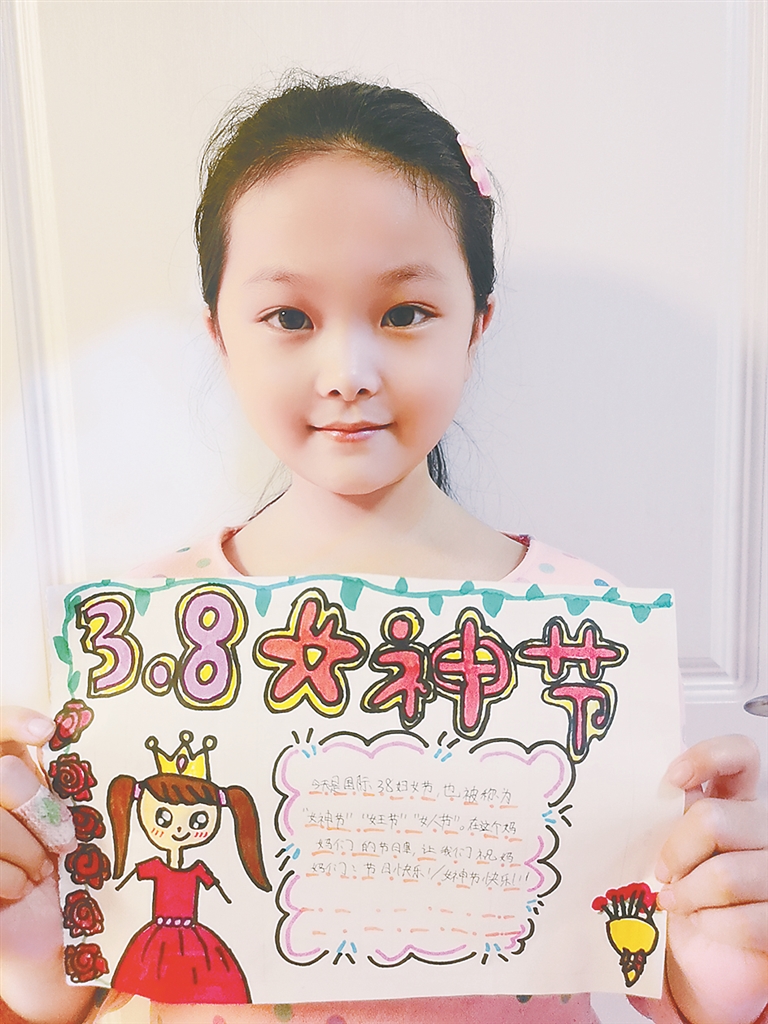 3.8女神节
今天是国际38妇女节,也被称为
"女神节""女王节""女人节"。在这个妈
妈们的节日里,让我们祝妈
妈们:节日快乐!女神节快乐!!!